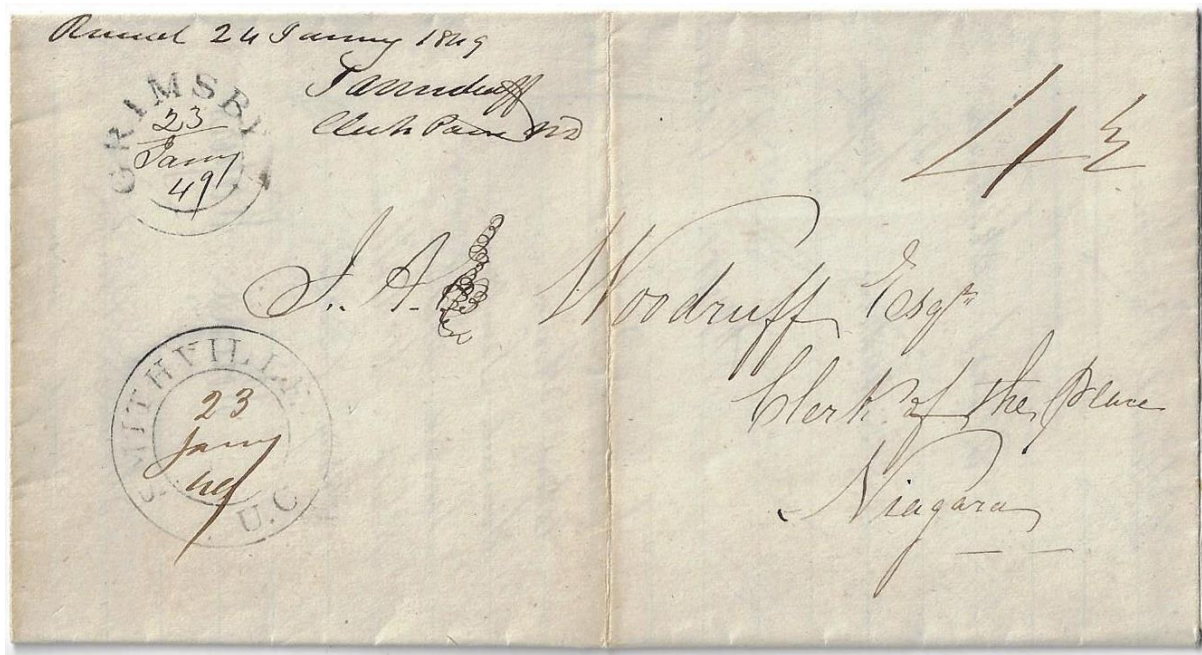 24 Jany 1849
Woodruff
Clerk Peace ND
GRIMSBY
23
Jany
49
4½
J. A. Woodruff Esqr
Clerk of the Peace
Niagara
SMITHVILLE
23
Jany
49
U.C